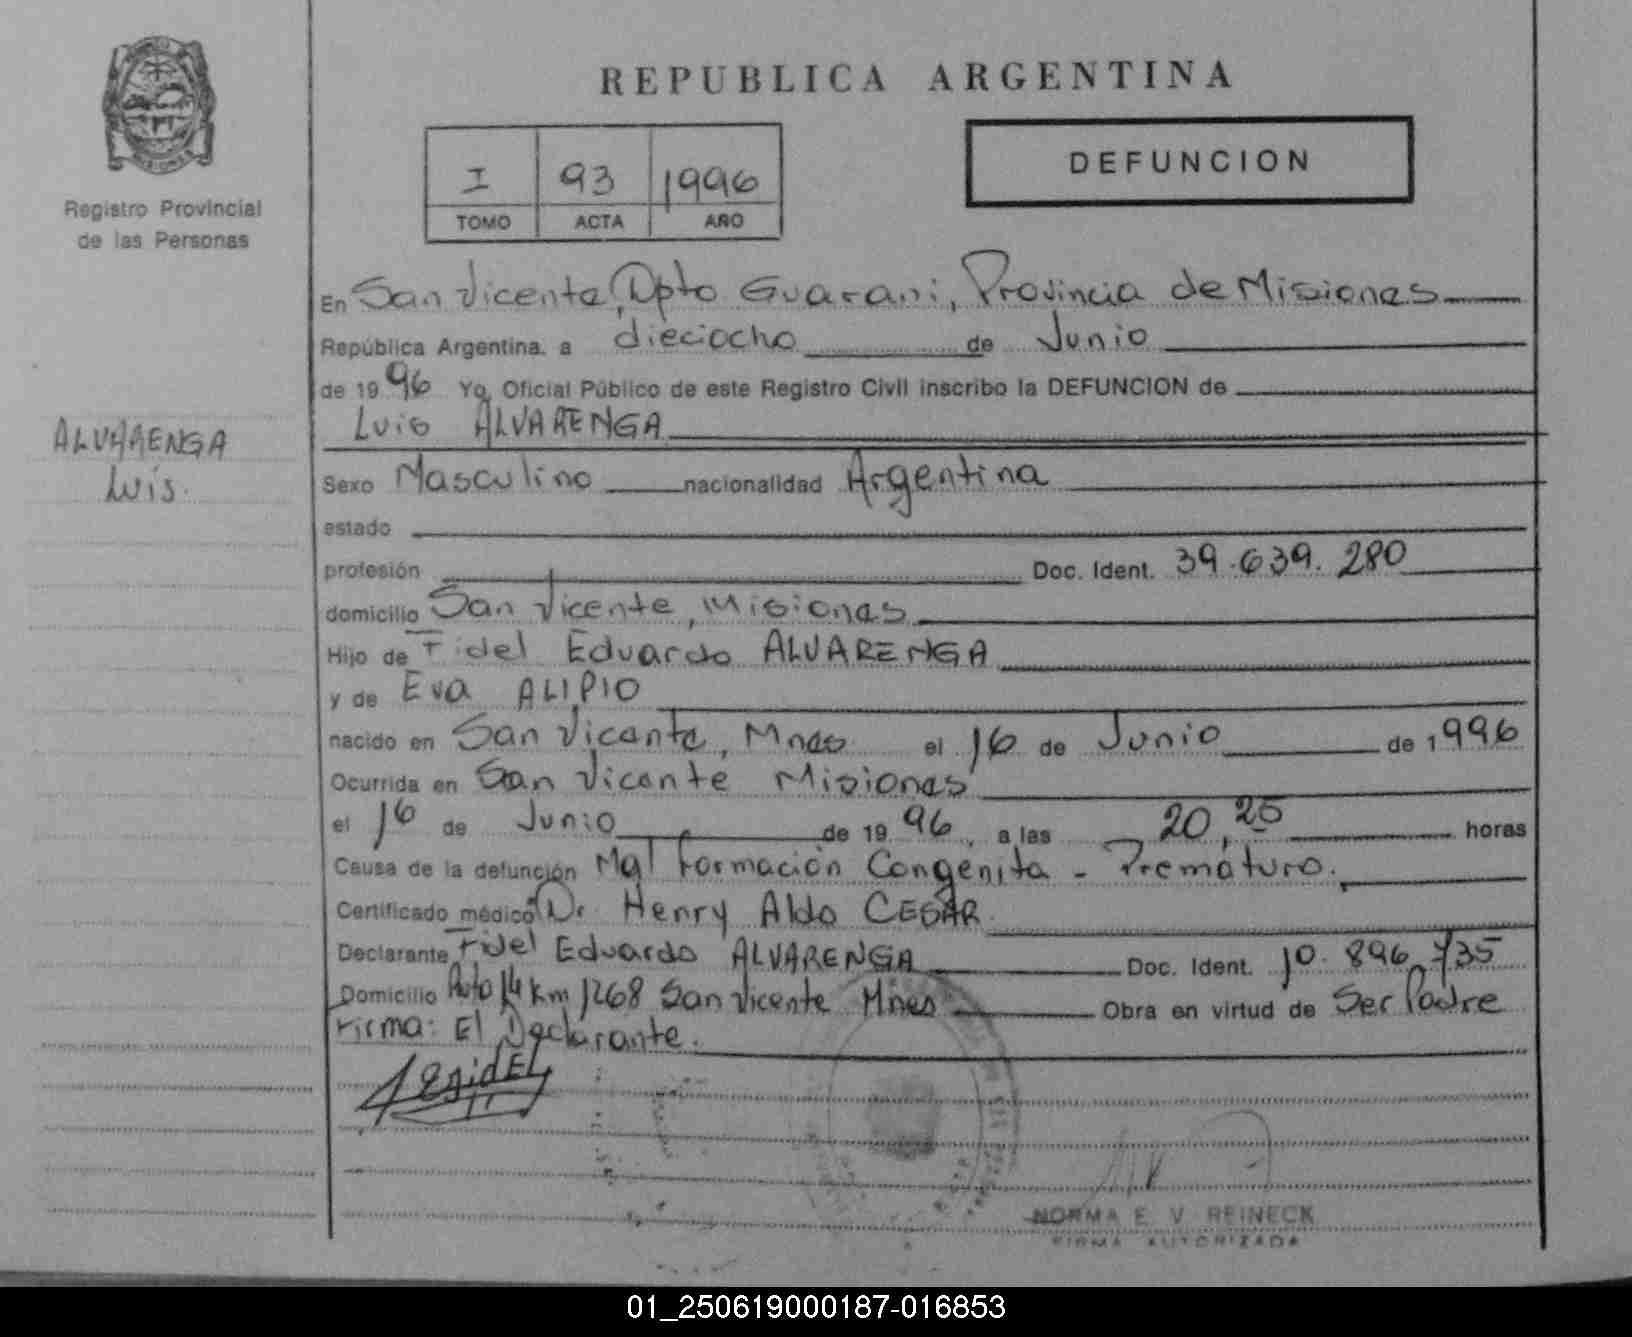 MISIONES
Registro Provincial
de las Personas
ALVARENGA
Luis.
REPUBLICA ARGENTINA
I 93 1996
TOMO ACTA AÑO
DEFUNCION
En San Vicente, Dpto Guarani, Provincia de Misiones
República Argentina. a dieciocho de Junio
de 1996 Yo, Oficial Público de este Registro Civil inscribo la DEFUNCION de
Luis ALVARENGA
Sexo Masculino nacionalidad Argentina
estado
profesión Doc. Ident. 39.639.280
domicilio San Vicente, Misiones
Hijo de Fidel Eduardo ALVARENGA
y de Eva ALIPIO
nacido en San Vicente, Mnes el 16 de Junio de 1996
Ocurrida en San Vicente Misiones
el 16 de Junio de 1996, a las 20,25 horas
Causa de la defunción Mal formación Congenita - Prematuro.
Certificado médico Dr Henry Aldo CESAR
Declarante Fidel Eduardo ALVARENGA Doc. Ident. 10.896.735
Domicilio Ruta 14 km 1268 San Vicente Mnes Obra en virtud de Ser Padre
Firma: El Declarante.
NORMA E. V. REINECK
FIRMA AUTORIZADA
01_250619000187-016853